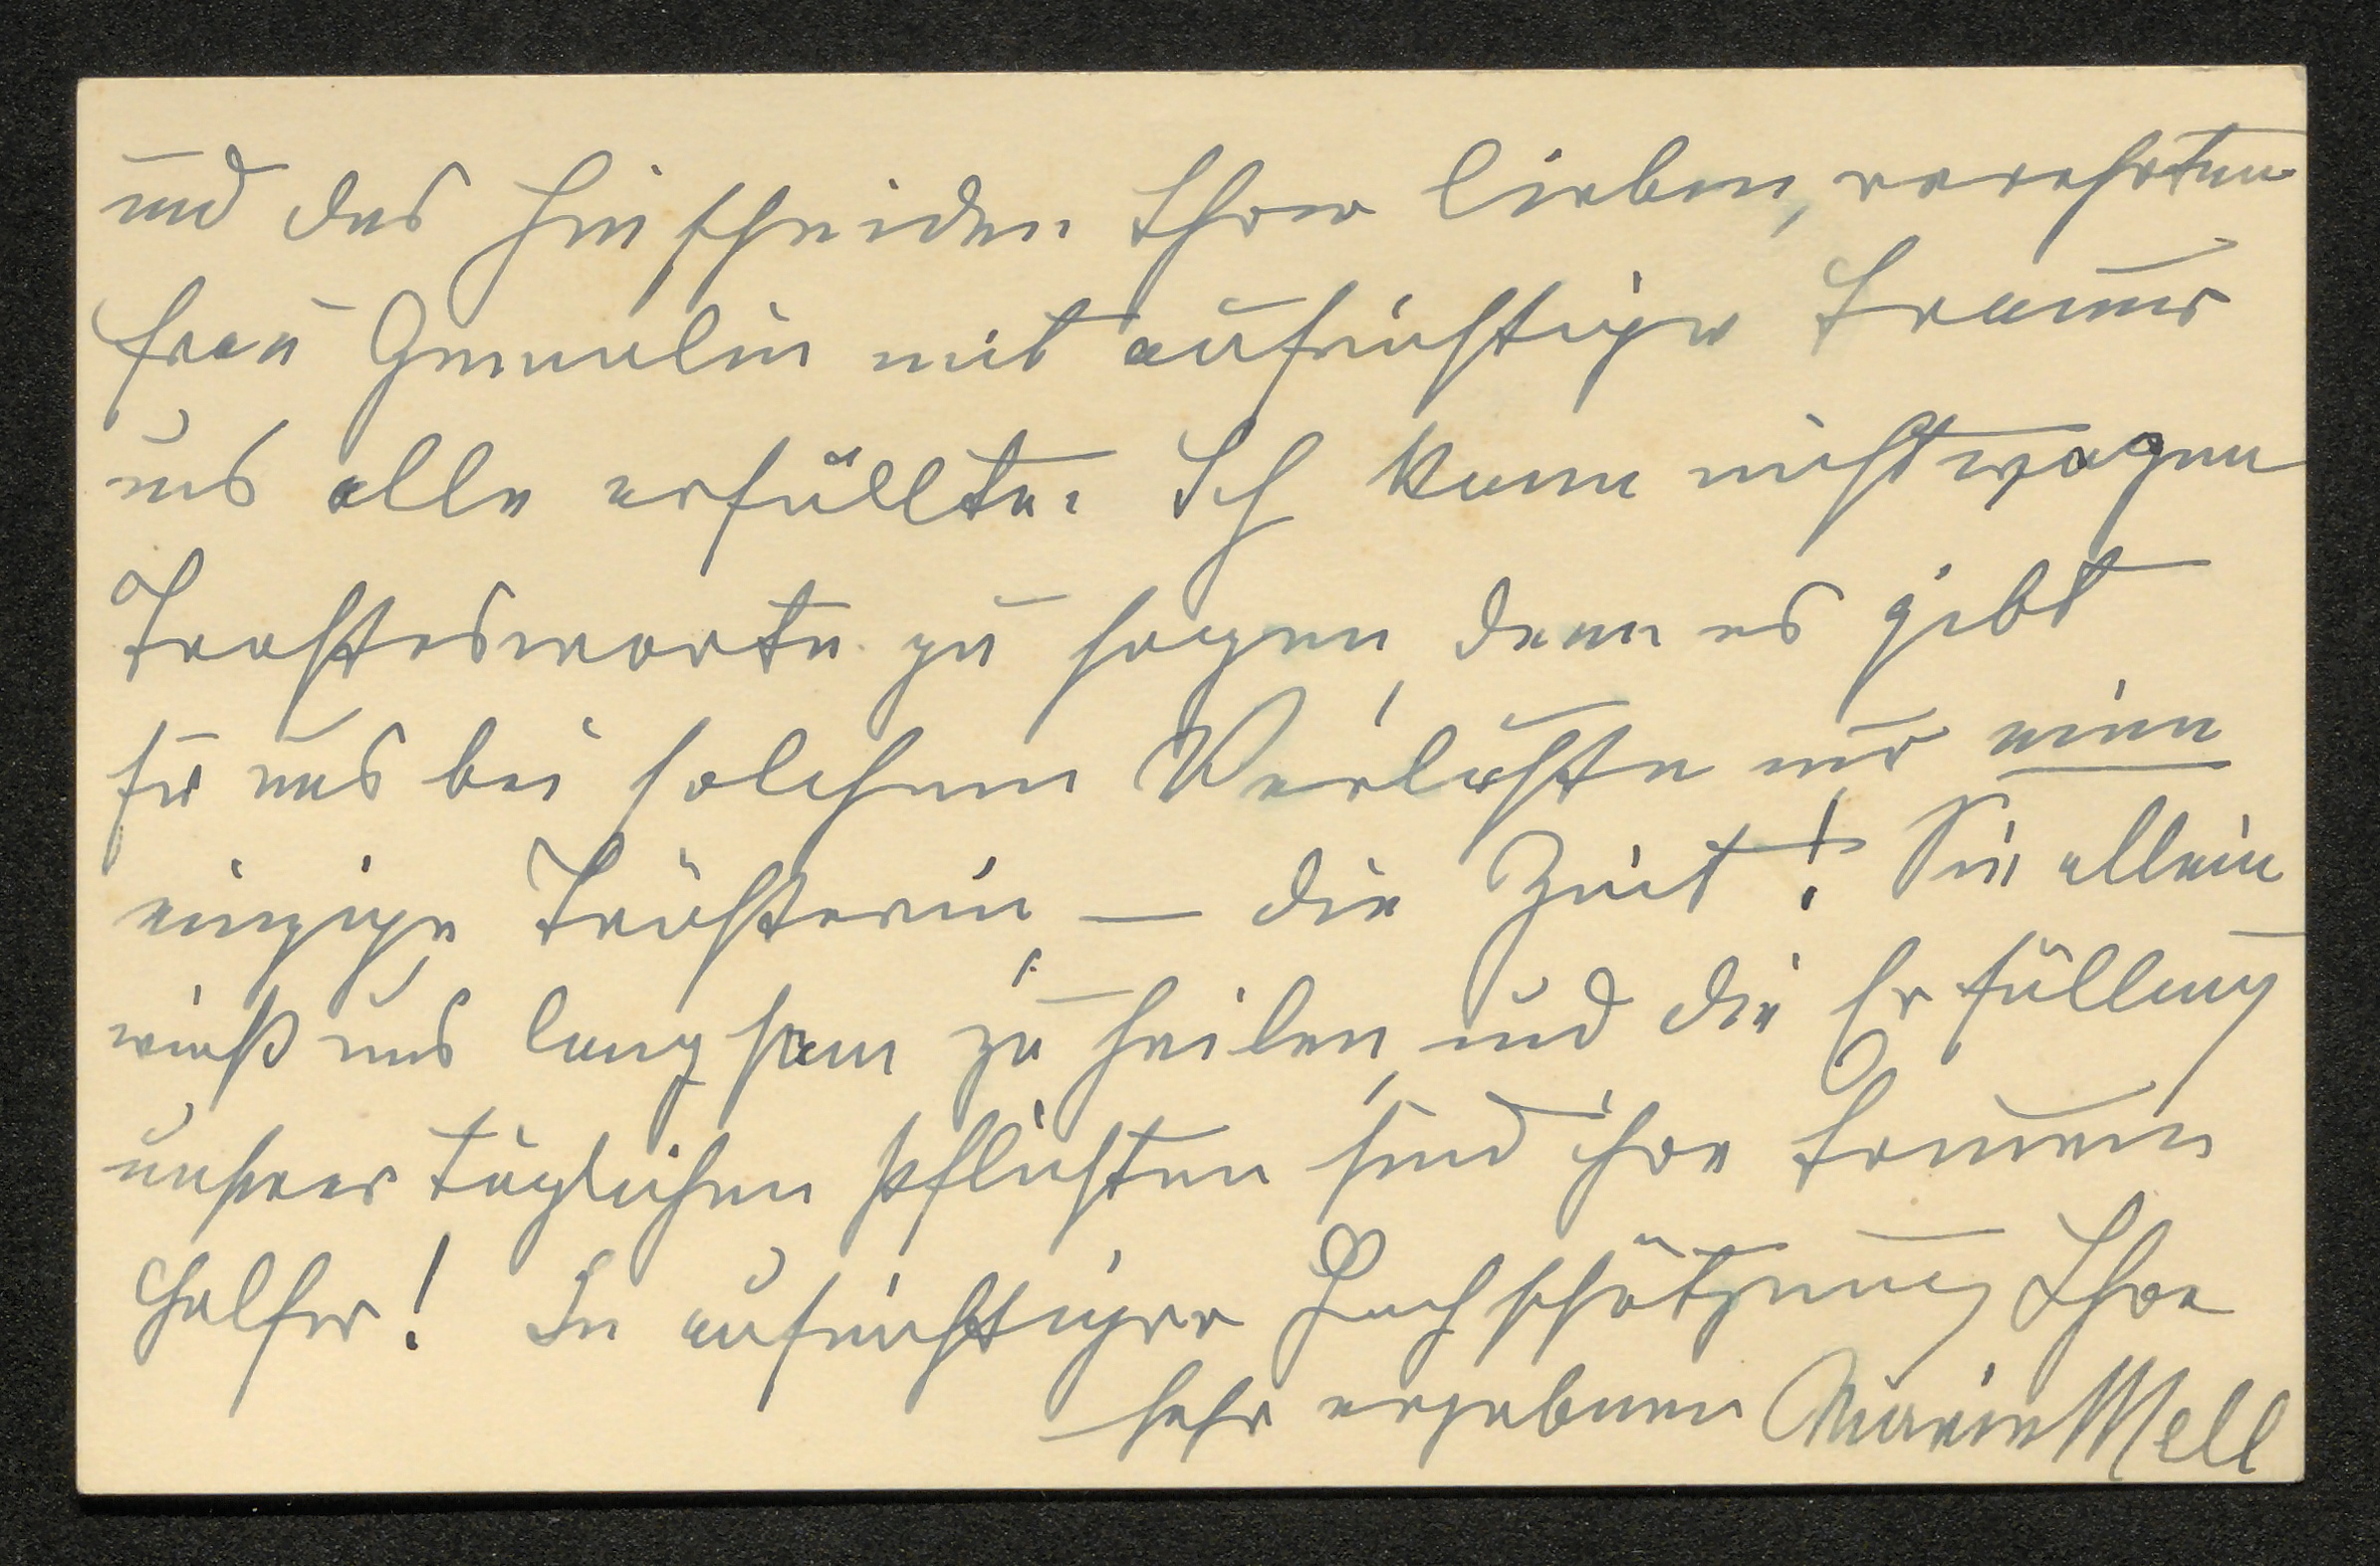 und das Hinscheiden Ihrer lieben, verehrten
Frau Gemalin mit aufrichtiger Trauer
uns alle erfüllte. Ich kann nicht wagen
Trostesworte zu sagen, denn es gibt
für uns bei solchem Verluste nur eine
einzige Trösterin, – die Zeit! Sie allein
weiß uns langsam zu heilen, und die Erfüllung
unserer täglichen Pflichten sind ihre treuen
Helfer! In aufrichtiger Hochschätzung Ihre
sehr ergebene Marie Mell